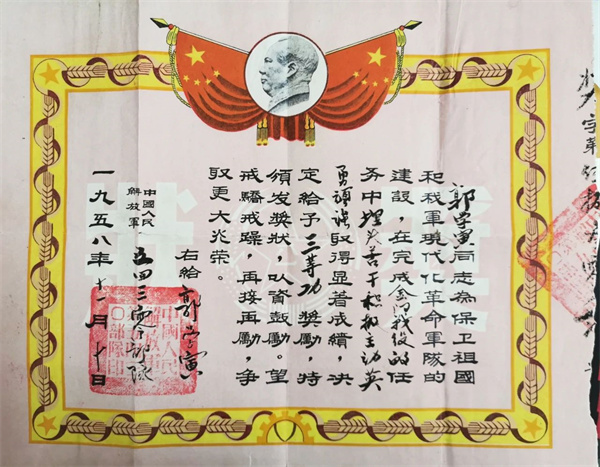 郭学寅同志為保卫祖國
和我軍現代化革命軍隊的
建設，在完成金门战役的任
务中埋头苦干积极主动英
勇頑强取得显著成績，决
定給予三等功獎勵，特
頒发獎狀，以資鼓勵。望
戒驕戒躁，再接再勵，争
取更大光荣。
右給 郭学寅
中國人民
解放軍
五四三部隊
一九五八年十一月十日